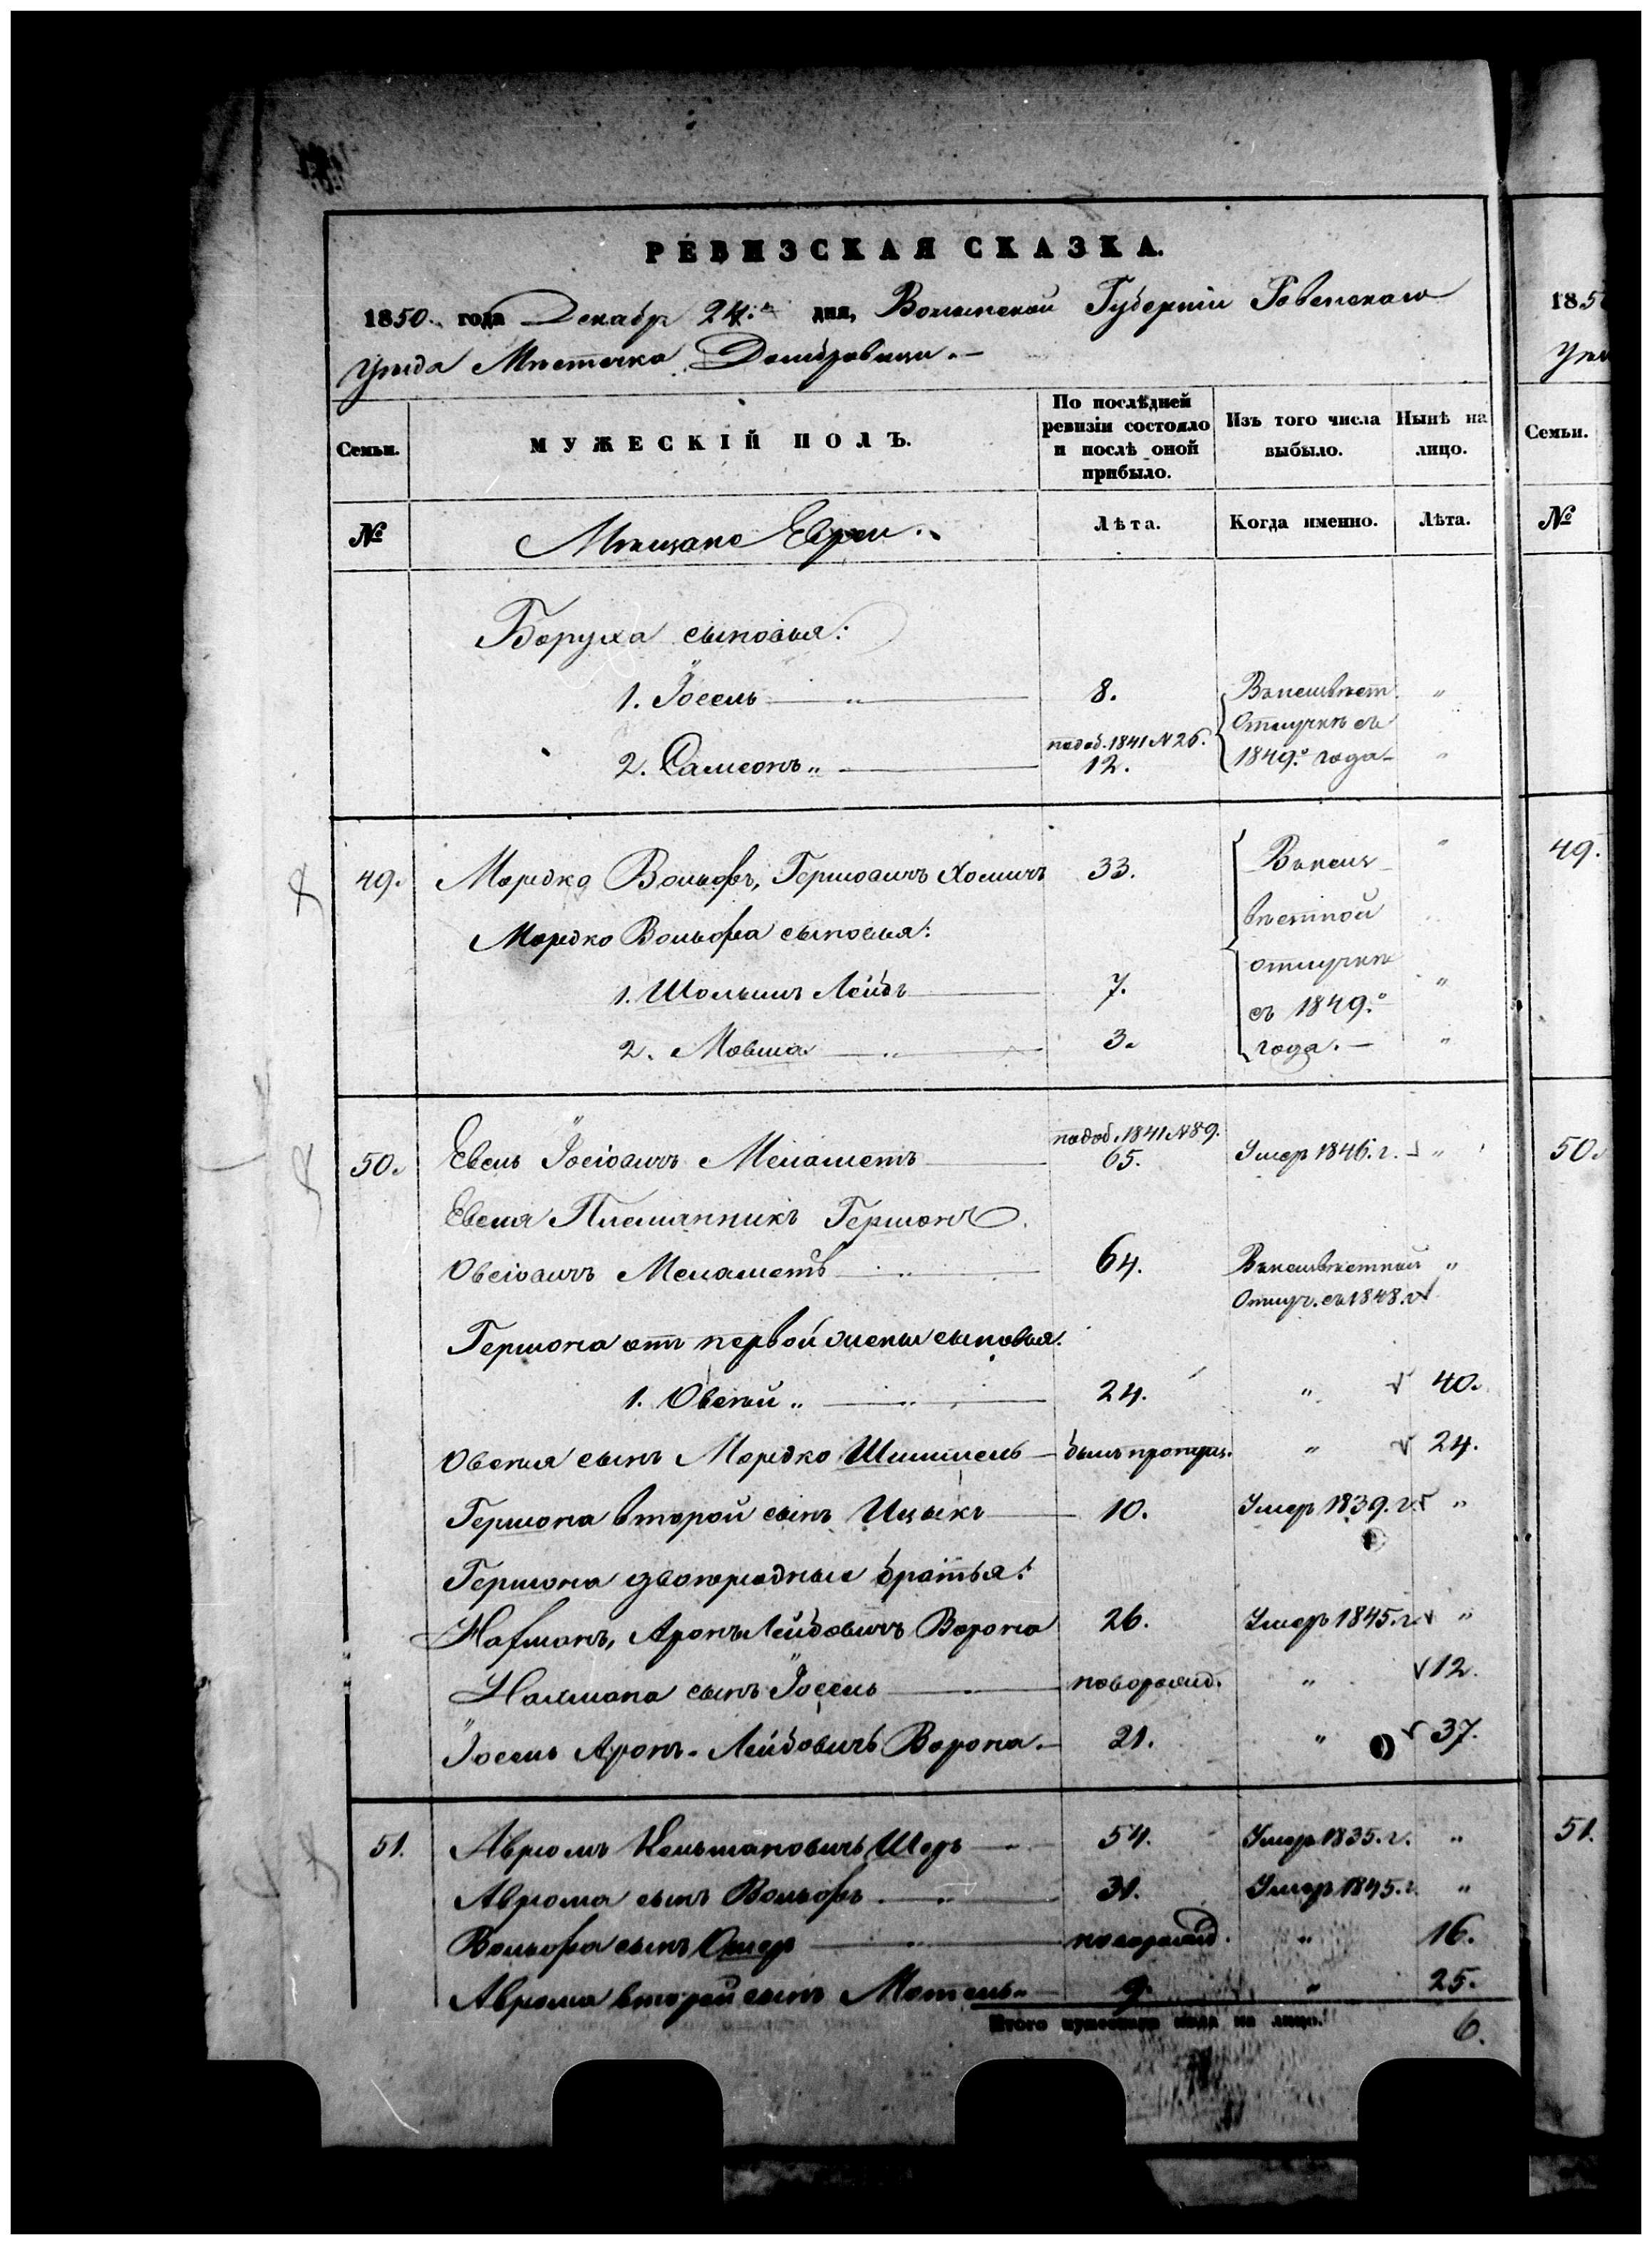 РЕВИЗСКАЯ СКАЗКА.
1850. года Декабр 24.го дня, Волынской Губерніи Ровенскаго
Уѣзда Мѣстечка Домбровицы.-
Семьи.
МУЖЕСКІЙ ПОЛЪ.
По послѣдней ревизіи состояло и послѣ оной прибыло.
Изъ того числа выбыло.
Нынѣ на лицо.
№ Мѣщане Евреи. Лѣта. Когда именно. Лѣта.
Боруха сыновья:
1. Іосель „ 8. Въ неизвѣст. „
2. Самсонъ „ по доб. 1841 N 26. 12. Отлучкѣ съ 1849.о года „
49. Мордко Вольфъ, Гершовичъ Хомичъ 33. Въ неиз- „
Мордко Вольфа сыновья: вѣстной „
1. Шольим Лейбъ 7. отлучкѣ „
2. Мовша „ 3. съ 1849.о года. „
50. Евель Іосіовичъ Меламетъ по доб. 1841 N 89. 65. Умер 1846. г. „
Евеля Племянникъ Гершонъ
Овсіовичъ Меламетъ „ 64. Въ неизвѣстной „
Отлуч. съ 1848. г.
Гершона отъ первой жены сыновья.
1. Овсей „ 24. „ 40.
Овсея сынъ Мордко былъ пропущ. „ 24.
Гершона второй сынъ Ицыкъ 10. Умер 1839. г. „
Гершона двоюродные братья:
Нахманъ, Аронъ Лейбовичъ Ворона 26. Умеръ 1845. г. „
Нахмана сынъ Іосель новорожд. „ 12.
Іосель Аронъ-Лейбовичъ Ворона 21. „ 37.
51. Аврomъ Кельмановичъ 54. Умер 1835. г. „
Аврома сынъ Вольфъ „ 31. Умеръ 1845. г. „
Вольфа сынъ Ошер „ новорожд. „ 16.
Аврома второй сынъ Мотель „ 9. „ 25.
Итого мужескаго пола на лицо. 6.
185
Семьи.
№
49.
50.
51.